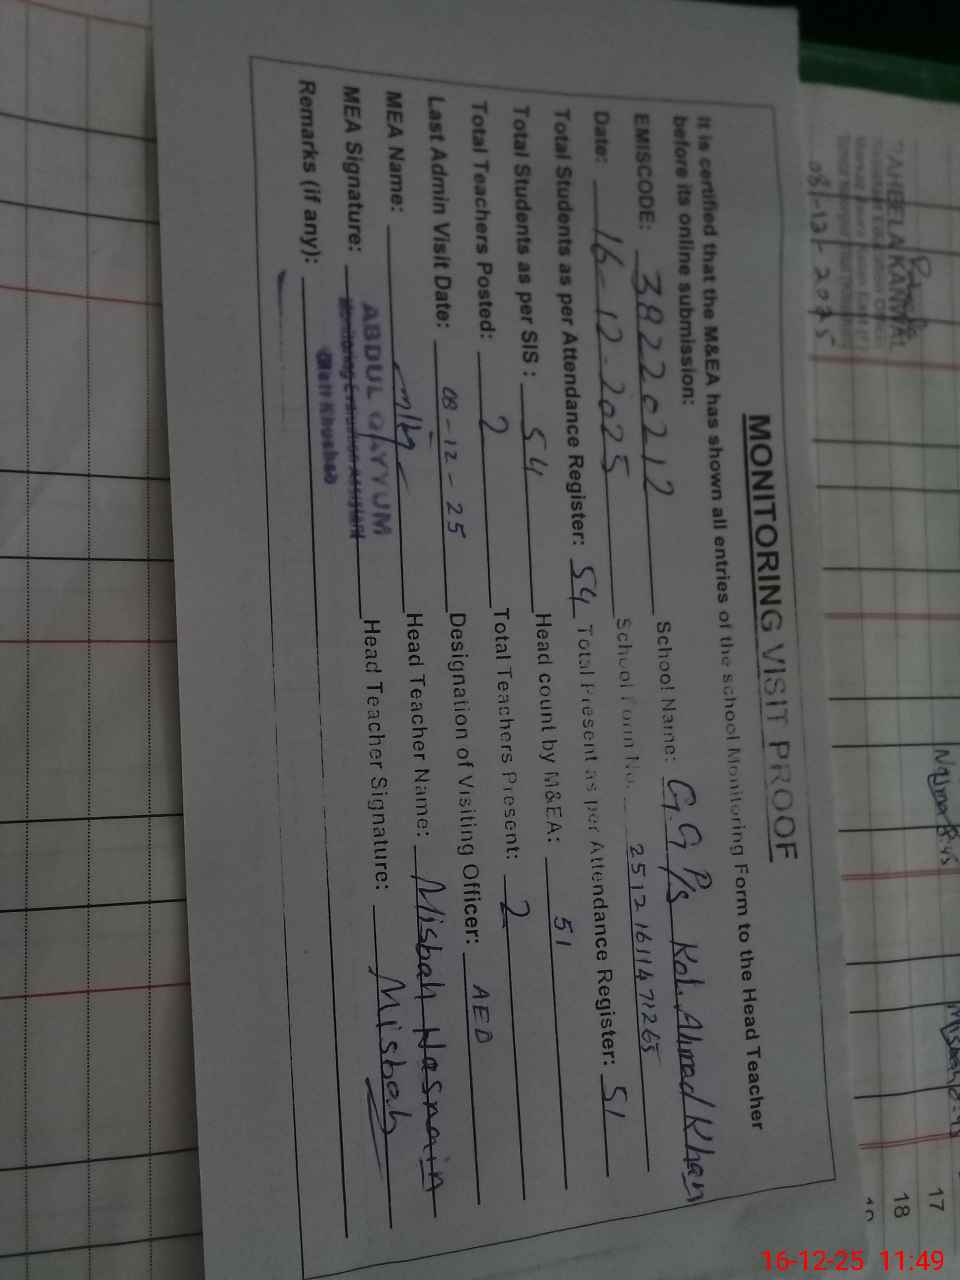 MONITORING VISIT PROOF
It is certified that the M&EA has shown all entries of the school Monitoring Form to the Head Teacher
before its online submission:
EMISCODE: 38220212 School Name: G.G P/s Kot. Ahmed Khan
Date: 16-12-2025 School Form No. 25121611471265
Total Students as per Attendance Register: 54 Total Present as per Attendance Register: 51
Total Students as per SIS: 54 Head count by M&EA: 51
Total Teachers Posted: 2 Total Teachers Present: 2
Last Admin Visit Date: 08-12-25 Designation of Visiting Officer: AEO
MEA Name: Head Teacher Name: Misbah Hasnain
MEA Signature: ABDUL QAYYUM Head Teacher Signature: Misbah
Monitoring Evaluation Assistant
Distt Khushab
Remarks (if any):
KANWAL
08-12-2025
17
18
16-12-25 11:49